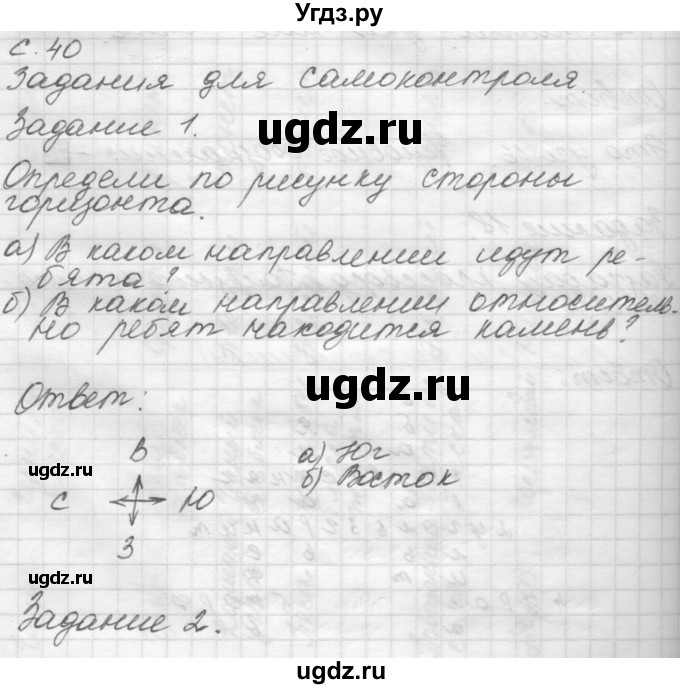 Угдз.ру
с. 40
Задания для самоконтроля.
Задание 1.
ugdz.ru
Определи по рисунку стороны
горизонта.
а) В каком направлении идут ре-
бята?
б) В каком направлении относитель-
но ребят находится камень?
ugdz.ru
Ответ:
В
а) Юг
ugdz.ru
б) Восток
С Ю
З
ugdz.ru
Задание 2.
ugdz.ru